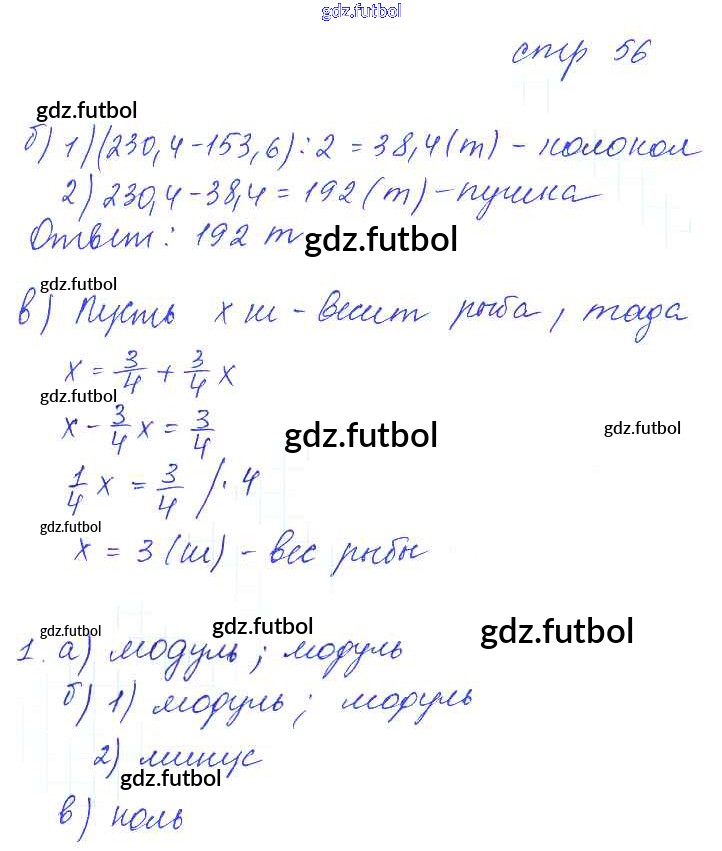 gdz.futbol
стр 56
gdz.futbol
б) 1) (230,4-153,6):2 = 38,4(т) - колокол
2) 230,4-38,4 = 192 (т) - пушка
Ответ: 192 т
gdz.futbol
gdz.futbol
в) Пусть x ш - весит рыба, тода
x = 3/4 + 3/4 x
gdz.futbol
x - 3/4 x = 3/4
gdz.futbol
gdz.futbol
1/4 x = 3/4 /· 4
gdz.futbol
x = 3 (ш) - вес рыбы
gdz.futbol
gdz.futbol
gdz.futbol
1. а) модуль; модуль
б) 1) модуль; модуль
2) минус
gdz.futbol
в) ноль